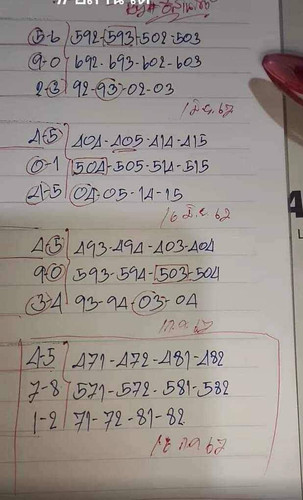 5-6 592-593-502-503
9-0 692-693-602-603
2-3 92-93-02-03
1 มิ.ย. 67
4-5 404-405-414-415
0-1 504-505-514-515
4-5 04-05-14-15
16 มิ.ย. 67
4-5 493-494-403-404
9-0 593-594-503-504
3-4 93-94-03-04
1 ก.ค 67
4-5 471-472-481-482
7-8 571-572-581-582
1-2 71-72-81-82
16 ก.ค 67